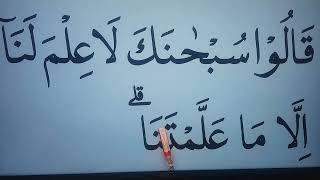 قَالُوْا سُبْحٰنَكَ لَا عِلْمَ لَنَآ
اِلَّا مَا عَلَّمْتَنَا ۗ